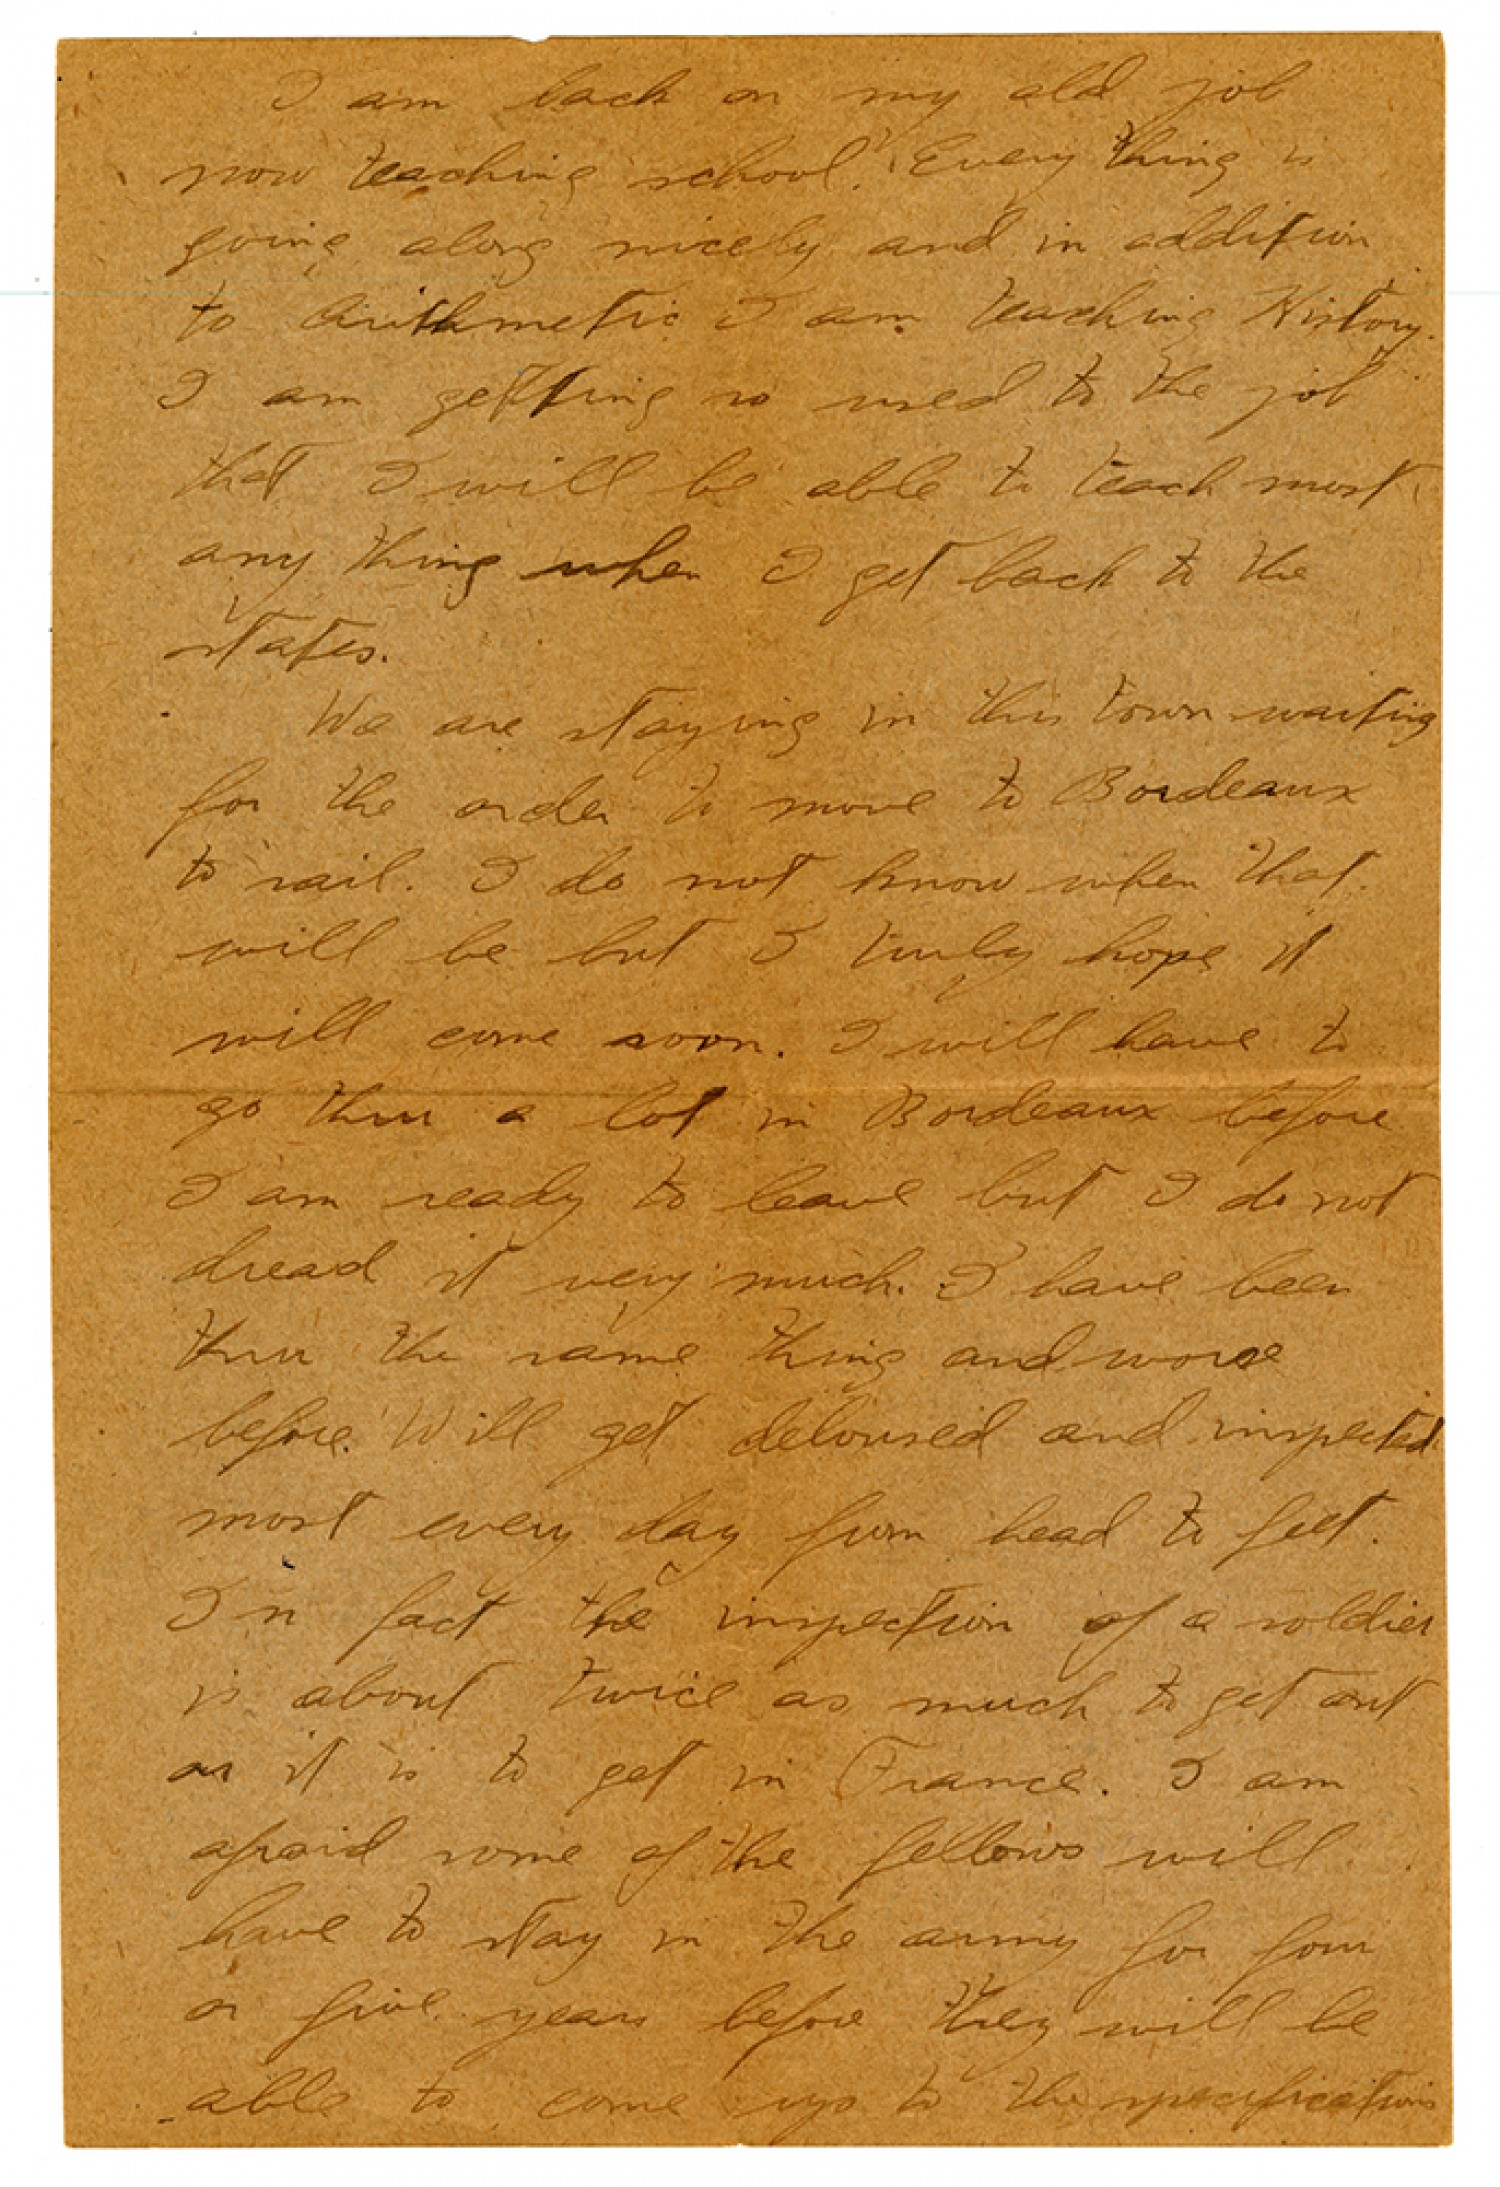 I am back on my old job
now teaching school. Every thing is
going along nicely and in addition
to Arithmetic I am teaching History.
I am getting so used to the job
that I will be able to teach most
any thing when I get back to the
states.
We are staying in this town waiting
for the order to move to Bordeaux
to sail. I do not know when that
will be but I truly hope it
will come soon. I will have to
go thru a lot in Bordeaux before
I am ready to leave but I do not
dread it very much. I have been
thru the same thing and worse
before. Will get deloused and inspected
most every day from head to feet.
In fact the inspection of a soldier
is about twice as much to get out
as it is to get in France. I am
afraid some of the fellows will
have to stay in the army for four
or five years before they will be
able to come up to the specifications